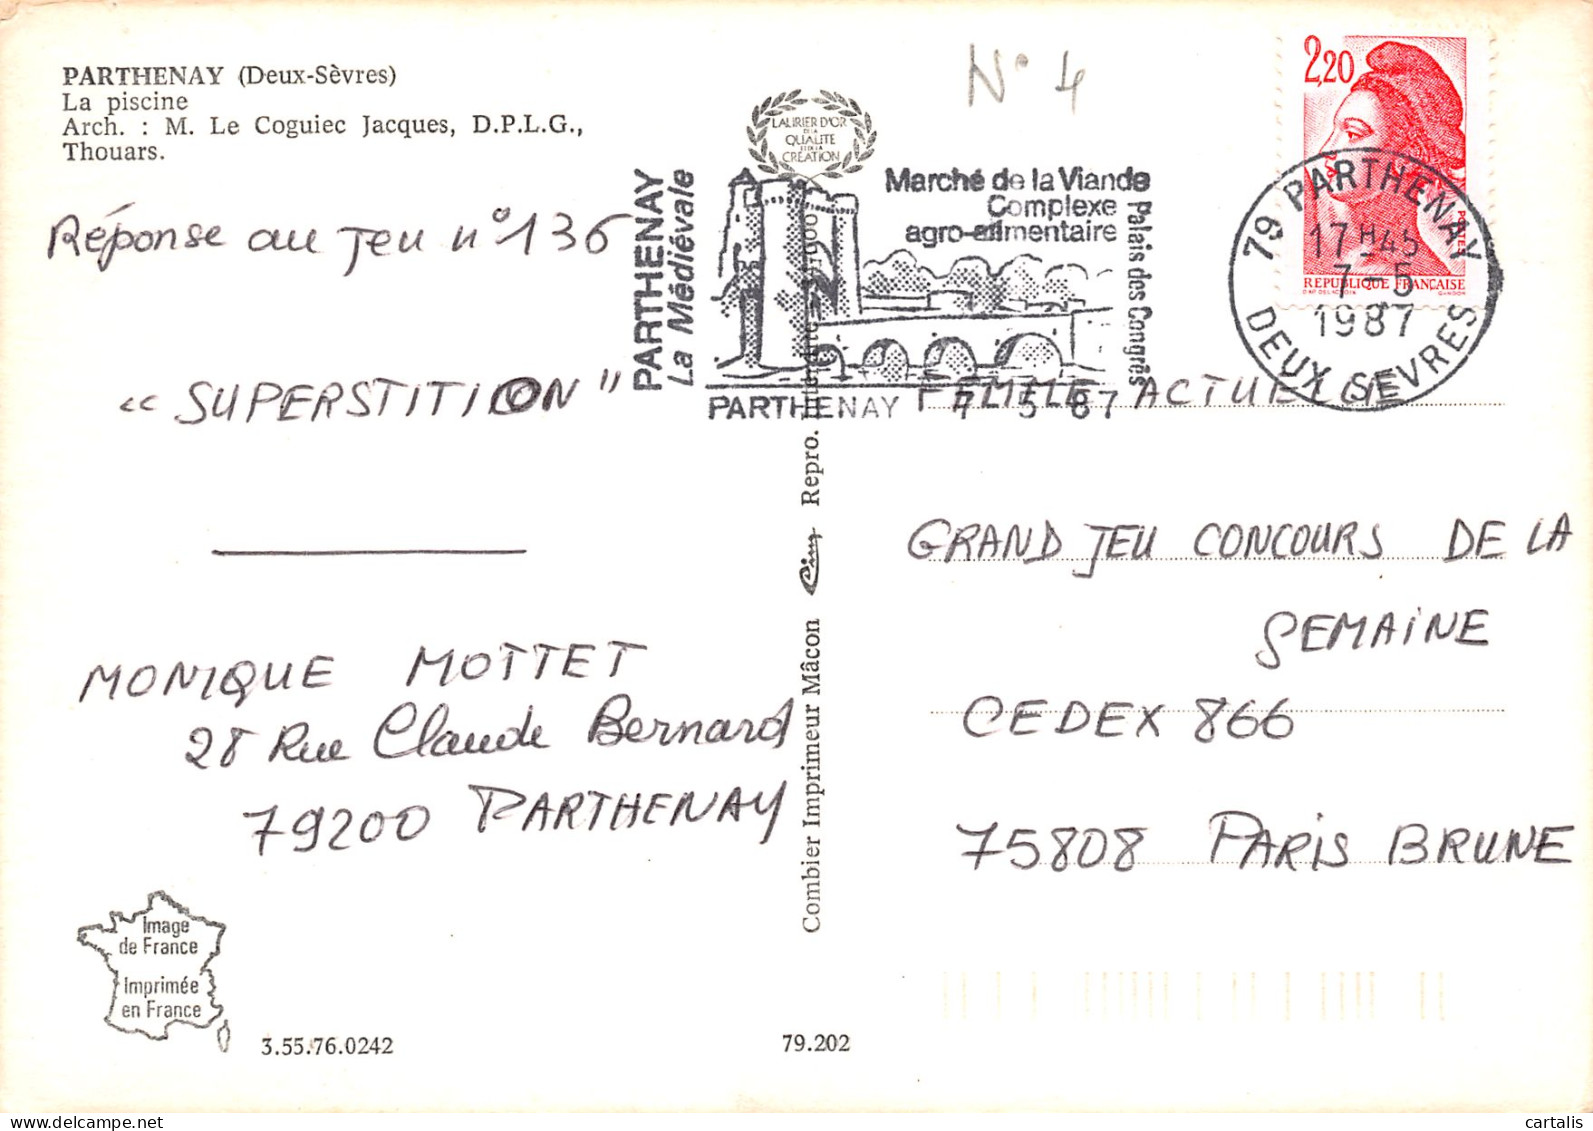 PARTHENAY (Deux-Sèvres)
La piscine
Arch. : M. Le Coguiec Jacques, D.P.L.G.,
Thouars.
Réponse au Jeu n° 136
« SUPERSTITION »
MONIQUE MOTTET
28 Rue Claude Bernard
79200 PARTHENAY
Image
de France
Imprimée
en France
3.55.76.0242
79.202
Combier Imprimeur Mâcon
Cim
Repro.
LAURIER D'OR
DE LA
QUALITE
ET DE LA
CRÉATION
PARTHENAY
La Médiévale
Marché de la Viande
Complexe
agro-alimentaire
Palais des Congrès
PARTHENAY 7 5 87
N° 4
2,20
POSTES
REPUBLIQUE FRANÇAISE
D'AP. DELACROIX GANDON
79 PARTHENAY
17H45
7-5
1987
DEUX SEVRES
FEMME ACTUELLE
GRAND JEU CONCOURS DE LA
SEMAINE
CEDEX 866
75808 PARIS BRUNE
cartalis
delcampe.net